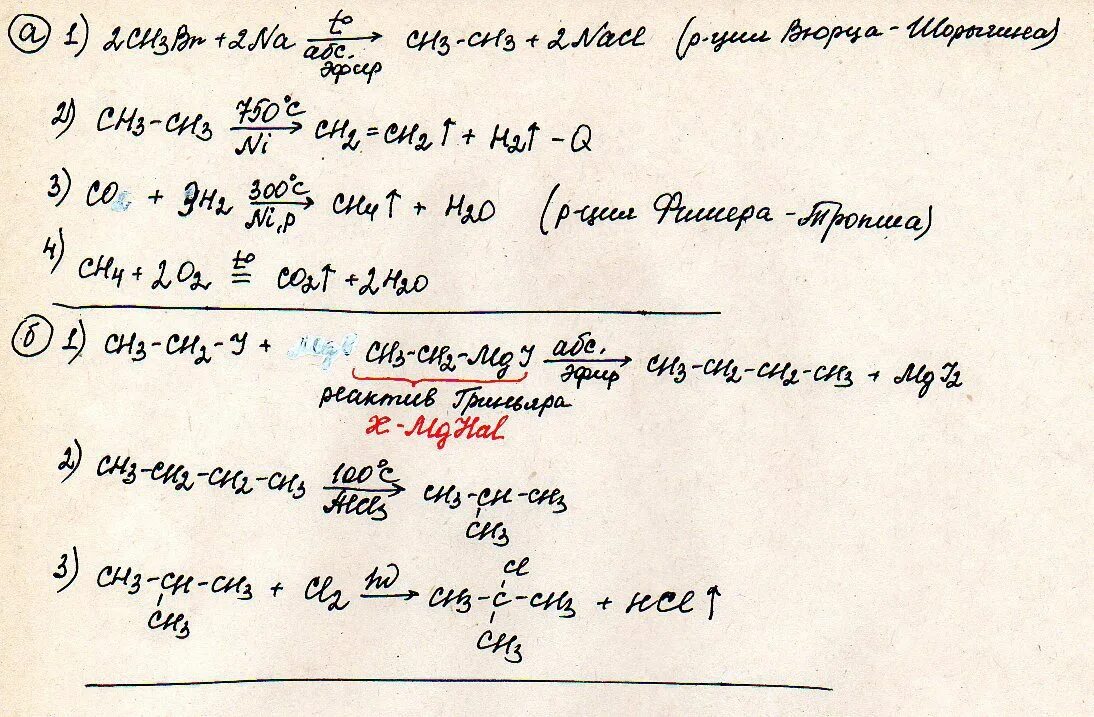 а 1) 2CH3Br + 2Na t° абс. эфир → CH3-CH3 + 2NaCl (р-ция Вюрца-Шорыгина)
2) CH3-CH3 750°C Ni → CH2=CH2↑ + H2↑ - Q
3) CO + 3H2 300°C Ni, p → CH4↑ + H2O (р-ция Фишера-Тропша)
4) CH4 + 2O2 t° = CO2↑ + 2H2O
б 1) CH3-CH2-J + CH3-CH2-MgJ абс. эфир → CH3-CH2-CH2-CH3 + MgJ2
реактив Гриньяра
X-MgHal
2) CH3-CH2-CH2-CH3 100°C AlCl3 → CH3-CH-CH3
CH3
Cl
3) CH3-CH-CH3 + Cl2 hν → CH3-C-CH3 + HCl↑
CH3 CH3